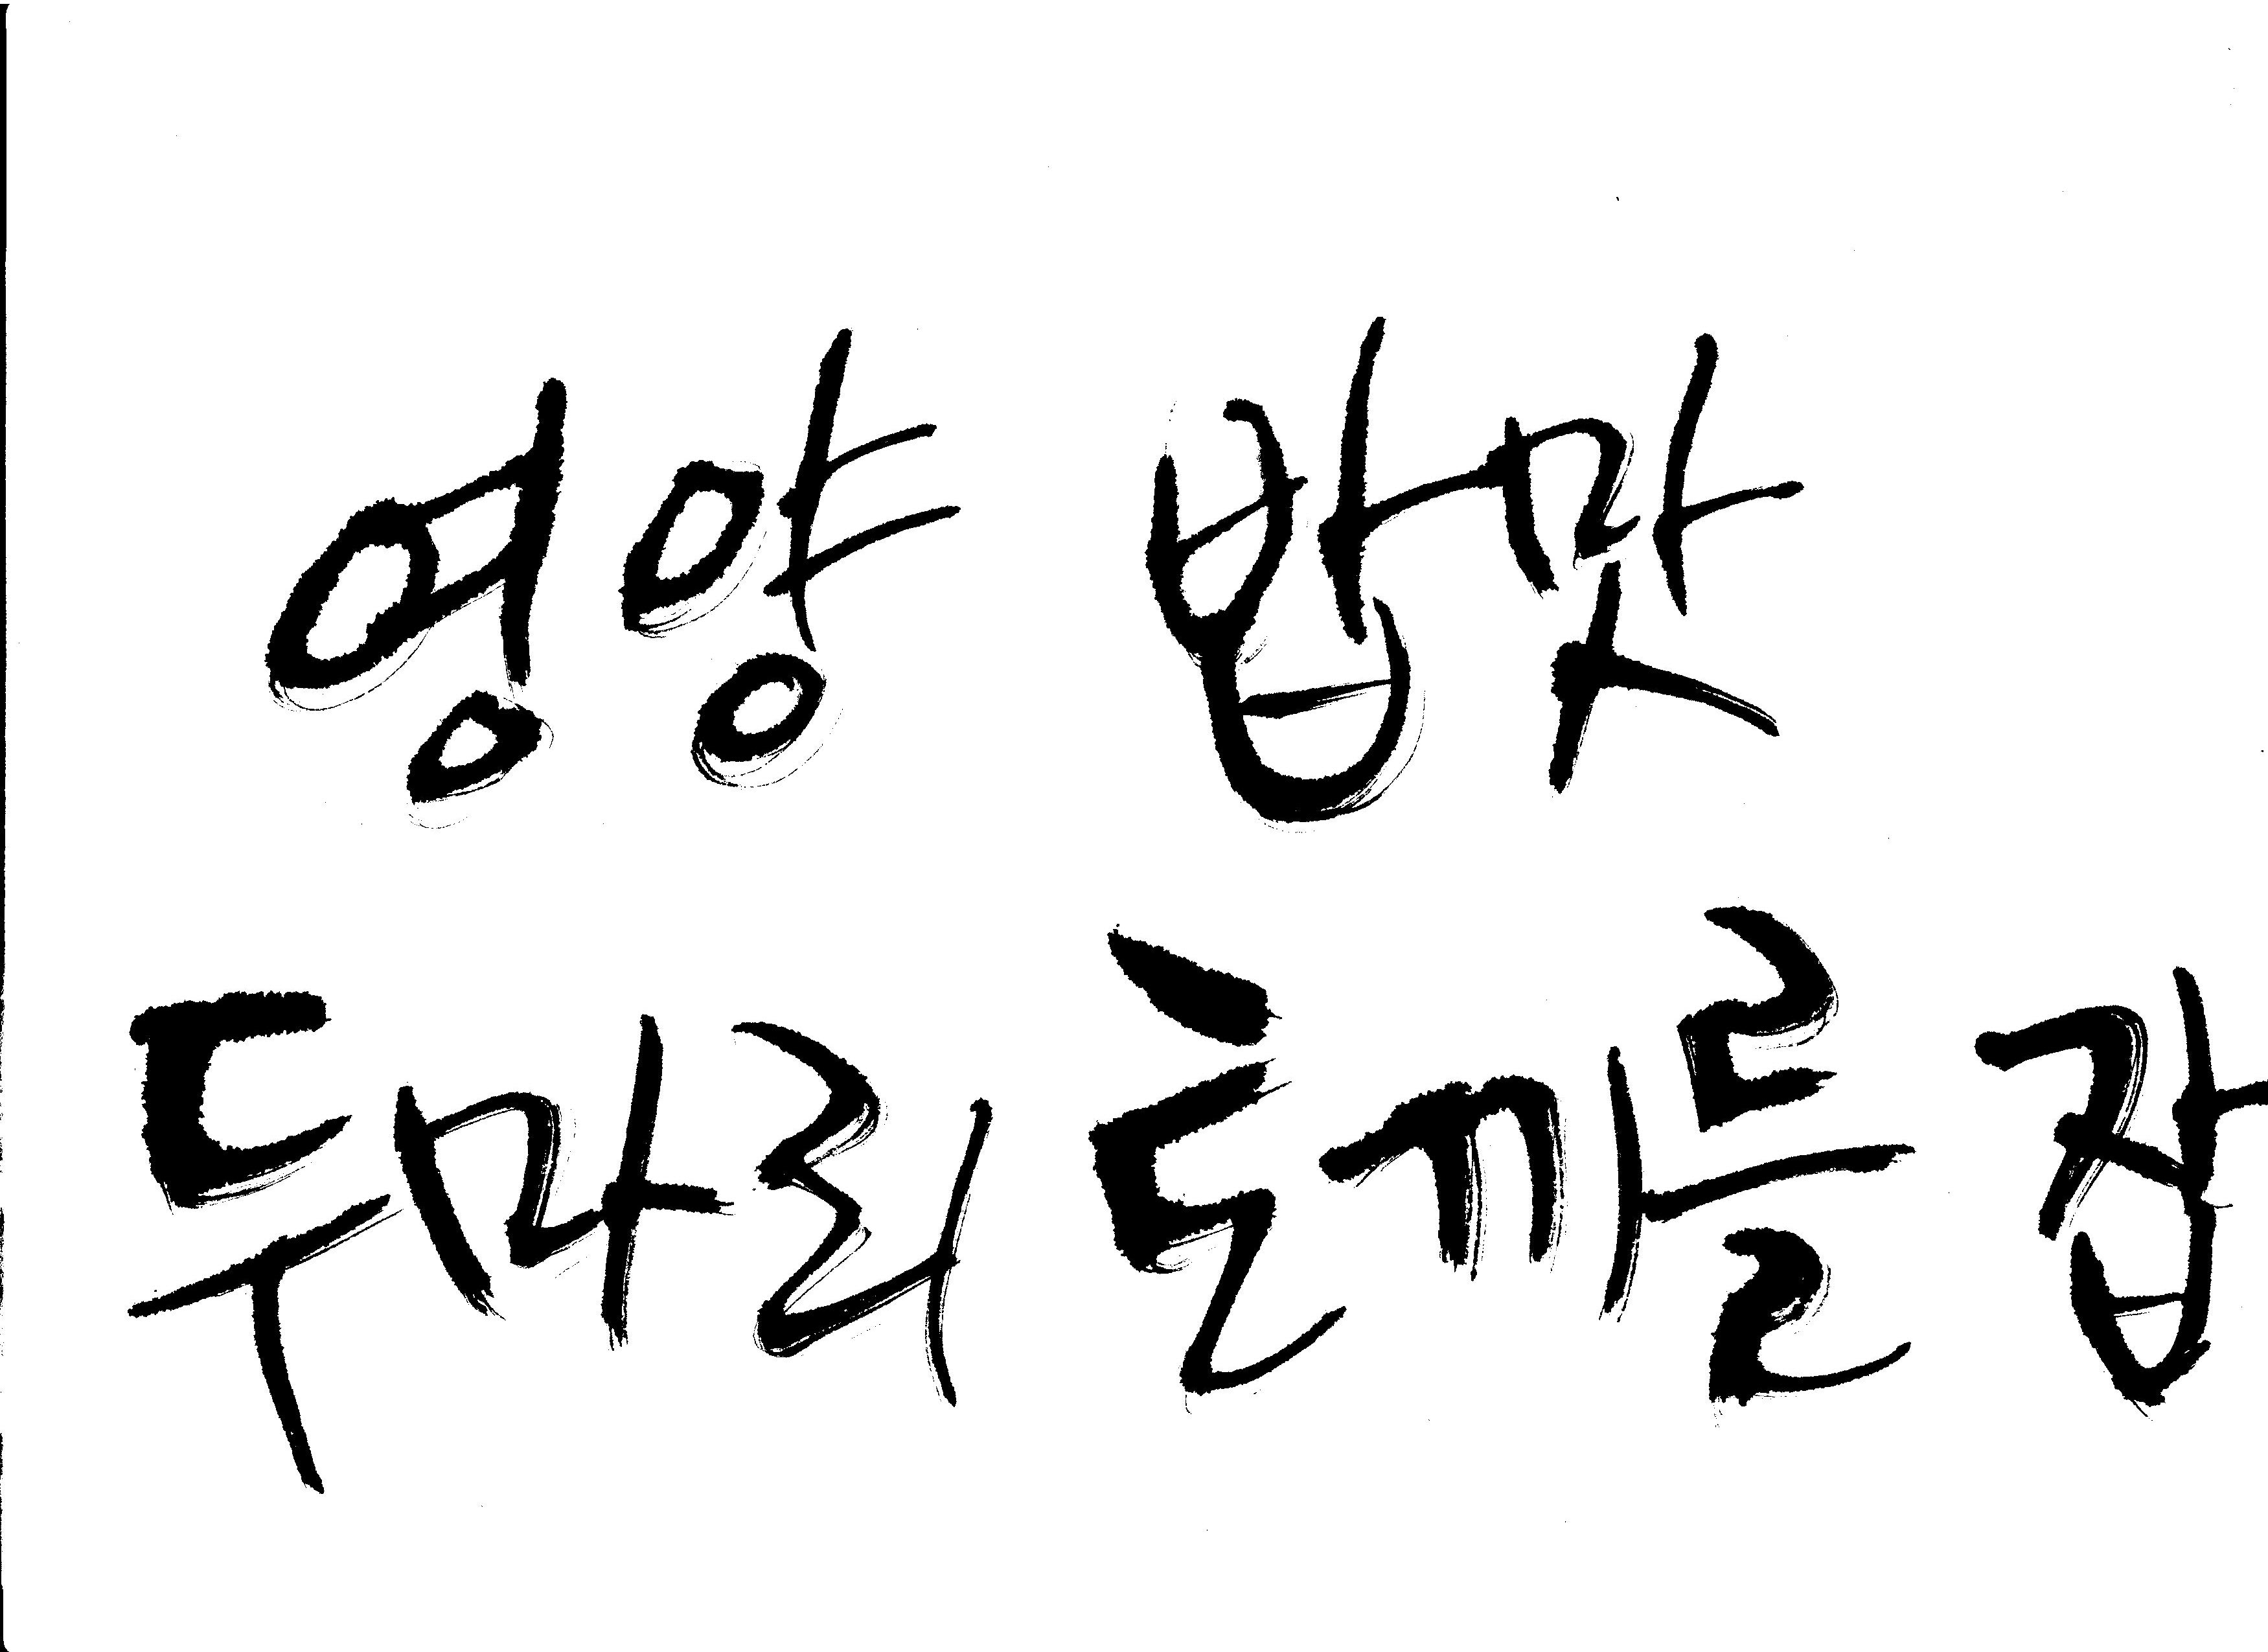 영양 밥맛
두마리 토끼를 잡